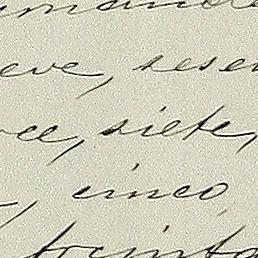 eve, sesen
ce, siete,
cinco
treinta